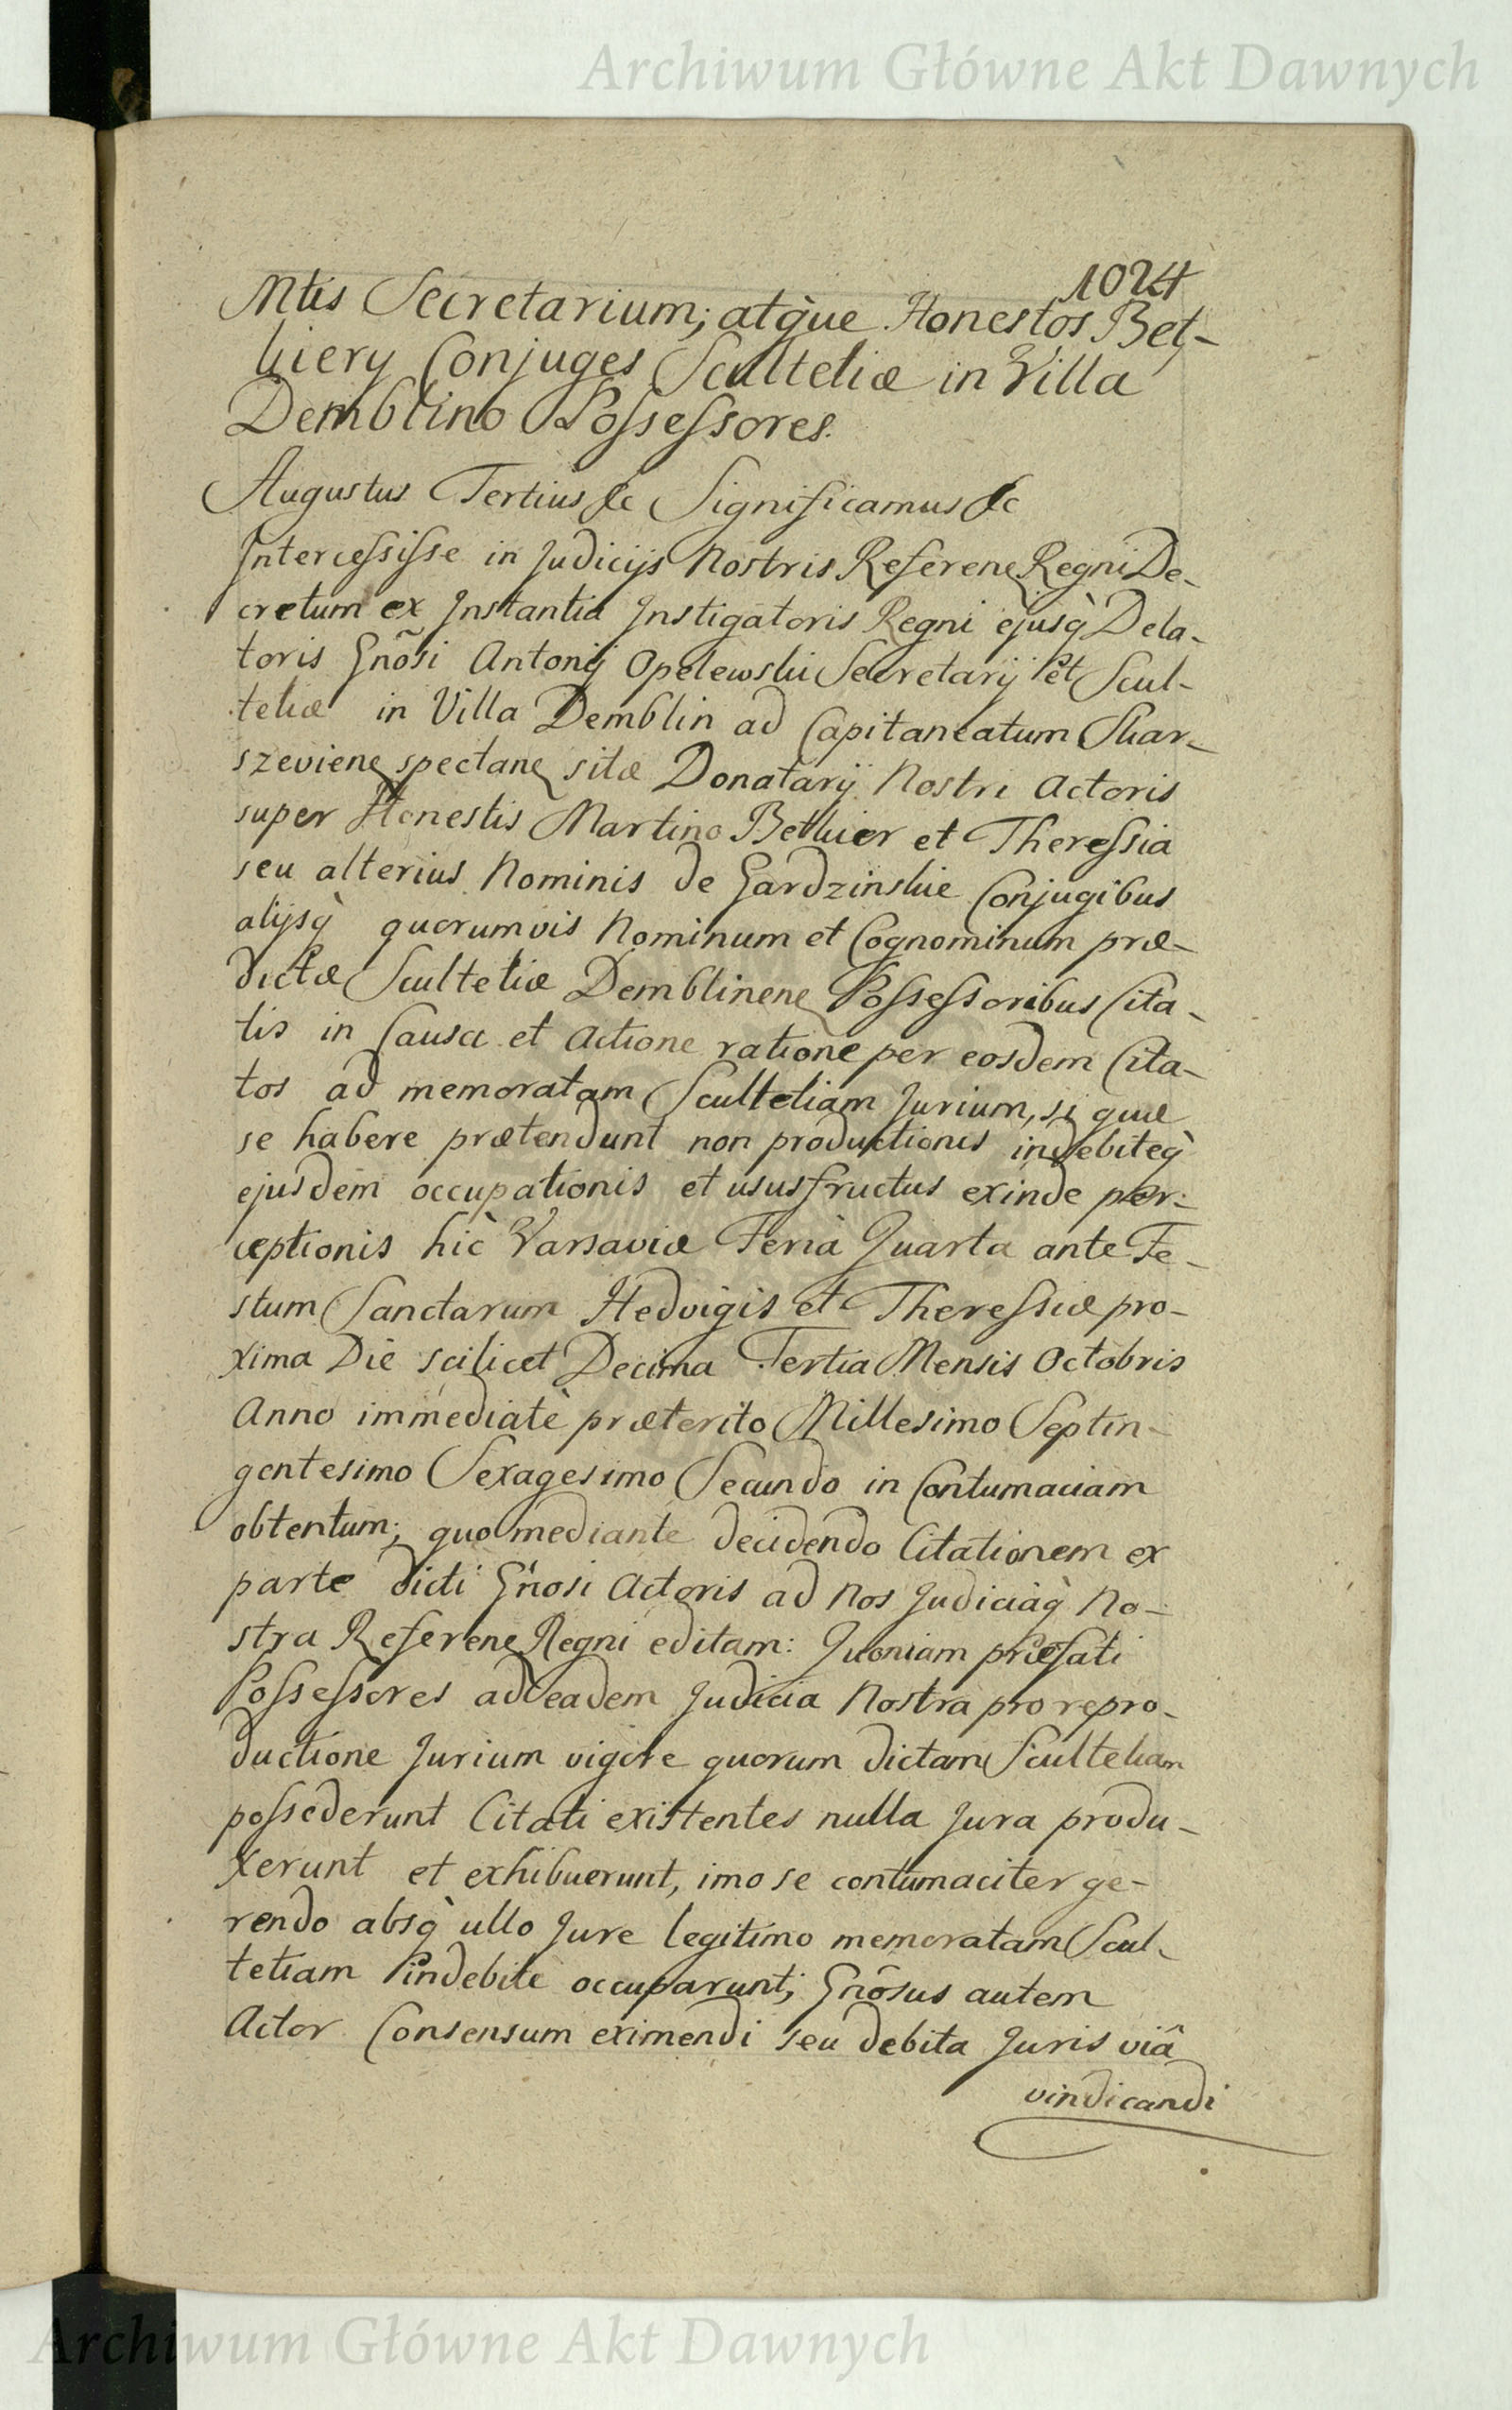 Archiwum Główne Akt Dawnych
1024
Mtis Secretarium; atq̀ue Honestos Bet-
kiery Conjuges Scultetiæ in Villa
Demblino Possessores.
Augustus Tertius &c Significamus &c
Intercessisse in Judicijs Nostris Referen Regni De-
cretum ex Instantia Instigatoris Regni ejusq̀ Dela-
toris Gñosi Antonij Opelewski Secretarij et Scul-
tetiæ in Villa Demblin ad Capitaneatum Skar-
szevien spectan sitæ Donatarij Nostri Actoris
super Honestis Martino Betkier et Theressia
seu alterius Nominis de Gardzinskie Conjugibus
alijsq̀ quorumvis Nominum et Cognominum præ-
dictæ Scultetiæ Demblinen Possessoribus Cita-
tis in Causa et Actione ratione per eosdem Cita-
tos ad memoratam Scultetiam Jurium, si quæ
se habere prætendunt non productionis indebiteq̀
ejusdem occupationis et ususfructus exinde per-
ceptionis hic Varsaviæ Feria Quarta ante Fe-
stum Sanctarum Hedvigis et Theressiæ pro-
xima Die scilicet Decima Tertia Mensis Octobris
Anno immediatè præterito Millesimo Septin-
gentesimo Sexagesimo Secundo in Contumaciam
obtentum; quo mediante decidendo Citationem ex
parte dicti Gñosi Actoris ad Nos Judiciaq̀ No-
stra Referen Regni editam: Quoniam præfati
Possessores ad eadem Judicia Nostra pro repro-
ductione Jurium vigore quorum dictam Scultetiam
possederunt Citati existentes nulla Jura produ-
xerunt et exhibuerunt, imo se contumaciter ge-
rendo absq̀ ullo Jure legitimo memoratam Scul-
tetiam indebite occuparunt; Gñosus autem
Actor Consensum eximendi seu debita Juris viâ
vindicandi
Archiwum Główne Akt Dawnych